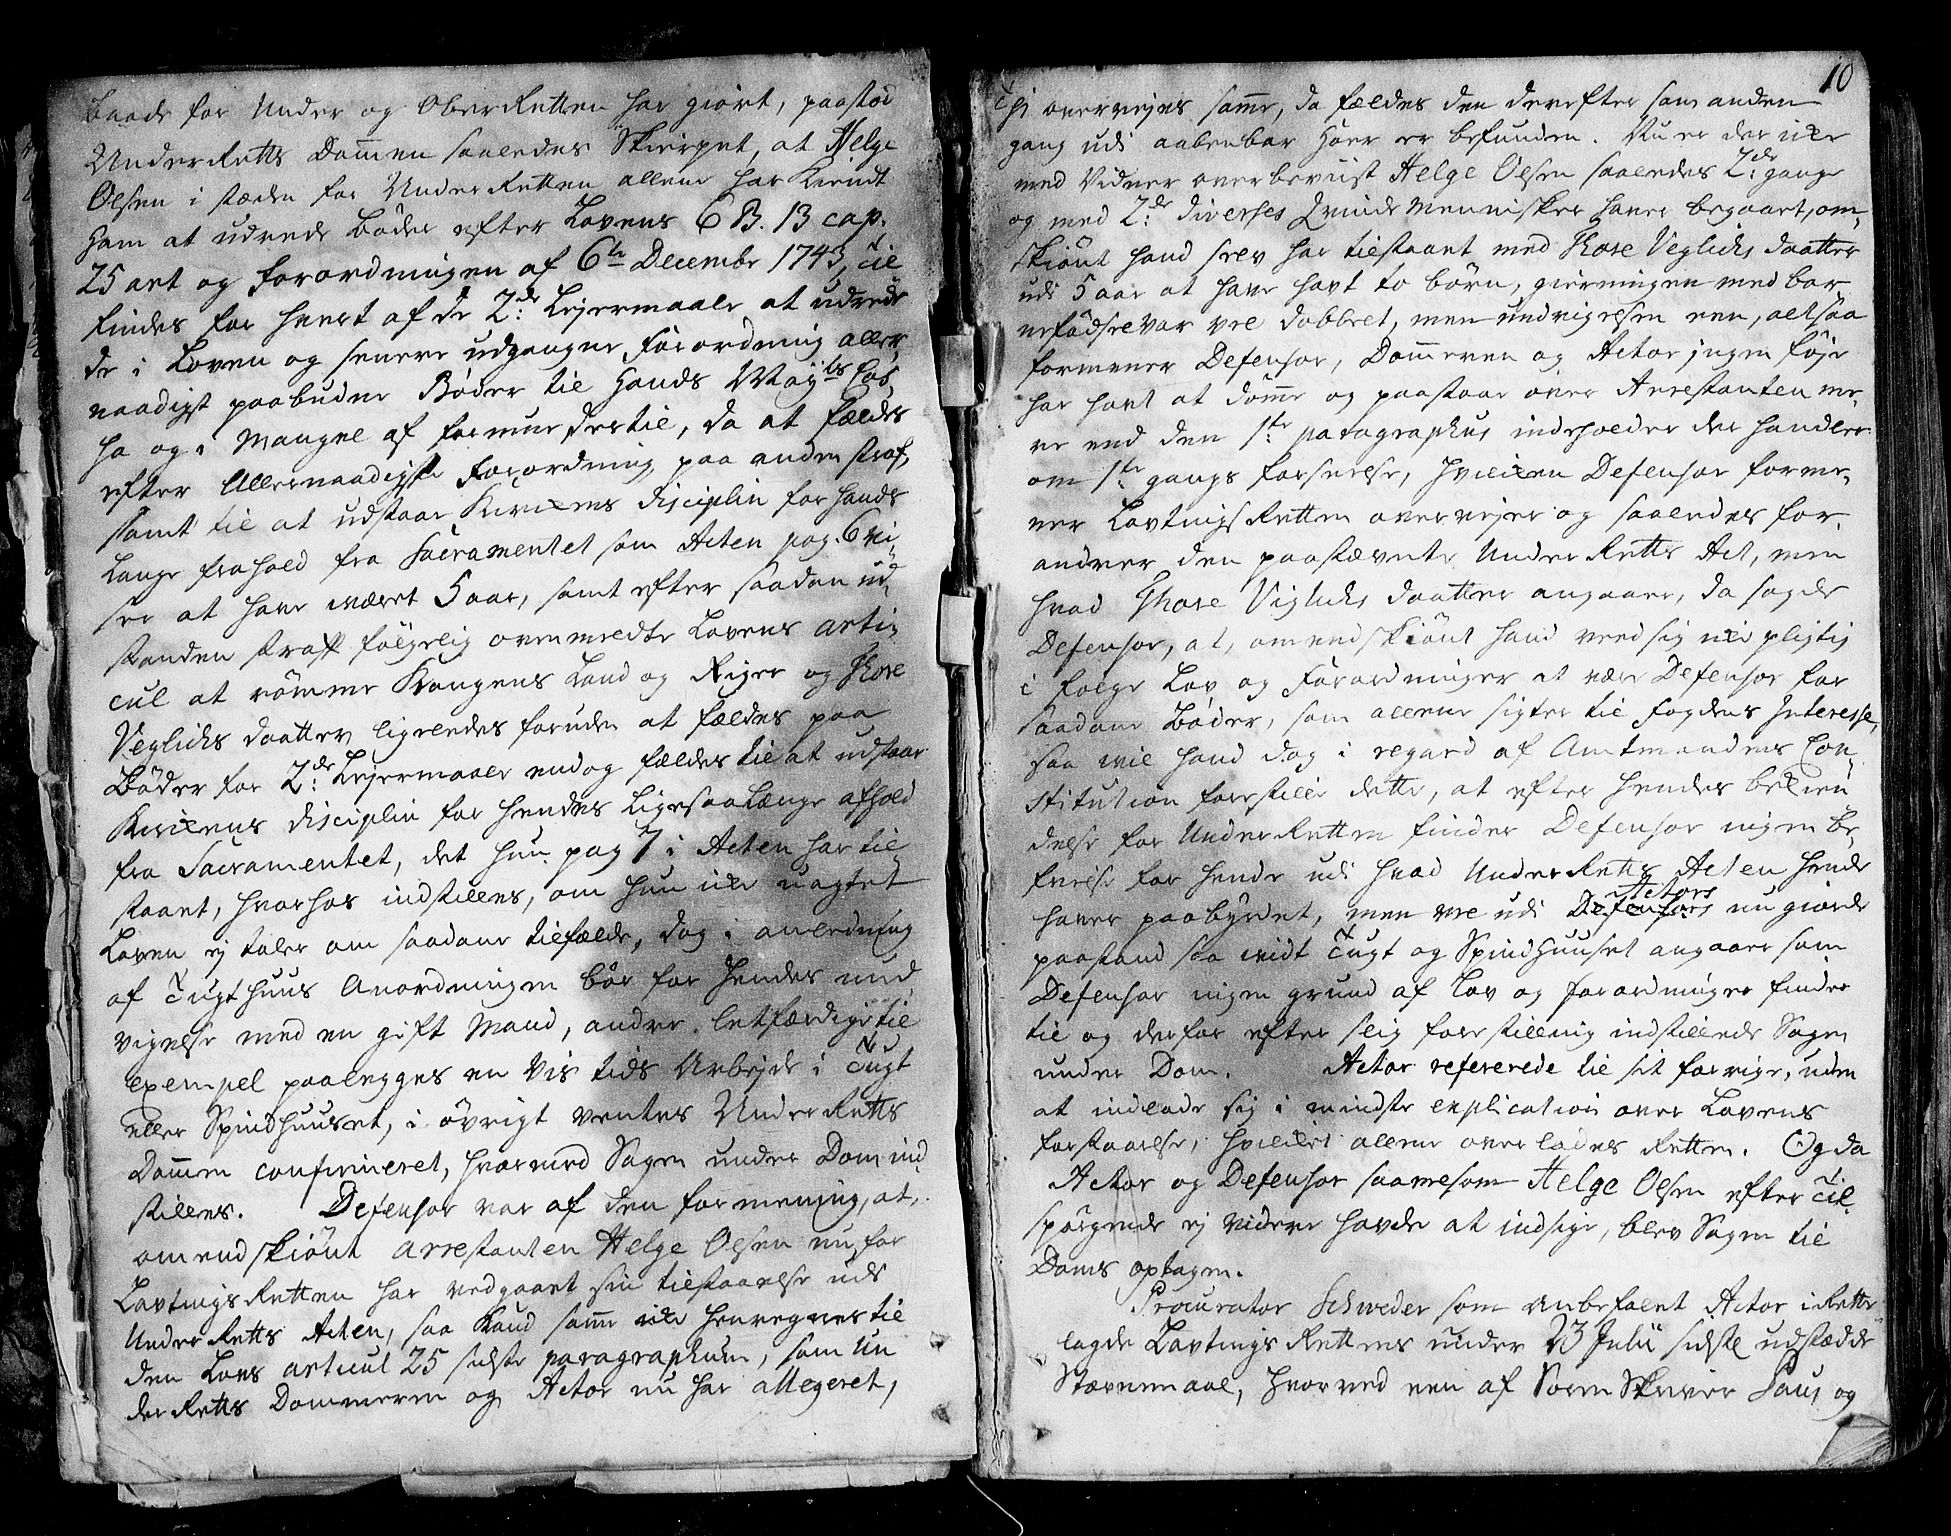 baade for Under og Ober Retten har giört, paastod
Under Retts Dommen saaledes Skierpet, at Helge
Olsen i stæden for Under Retten allene har Kiendt
ham at udrede bøder efter Lovens 6 B. 13 cap.
25 art og Forordningen af 6te Decembr 1743, til
findes for hvert af de 2de Lejermaale at udrede
de i Loven og senere udgangne Forordning aller,
naadigst paabudne Bøder til Hands Mayts Cas,
ha og i Mangel af formue dertil, da at fældes
efter Allernaadigste Forordning paa anden straf,
samt til at udstaae Kirkens disciplin for hands
lange frahold fra Sacramentet som Acten pag. 6 vi
ser at have været 5 aar, samt efter saadan ud
standen straff følgelig ovenmeldte Lovens arti,
cul at römme Kongens Land og Riger og Thore
Veglichs daatter ligeledes foruden at fældes paa
Bøder for 2de Lejermaale endog fældes til at udstaae
Kirkens disciplin for hendes ligesaa længe afhold
fra Sacramentet, det hun pag 7 i Acten har til
staaet, hvorhos indstilles, om hun ike uagtet
Loven ej taler om saadane tilfælde, dog i anledning
af Tugthuus Anordningen bör for hendes und,
vigelse med en gift Mand, andre letfærdige til
exempel paalegges en vis tids Arbejde i Tugt
eller Spindhuuset, i øvrigt ventes Under Retts
Dommen confirmeret, hvormed Sagen under Dom ind
stilles. Defensor var af den formening, at,
omendskiönt Arrestanten Helge Olsen nu for
Lavtings Retten har vedgaaet sin tilstaaelse udi
Under Retts Acten, saa kand samme ike henregnes til
den Lovs articul 25 sidste paragraphum, som Un
der Retts Dommeren og Actor nu har allegeret,
10
Thi overvejes samme, da fældes den derefter som anden
gang udi aabenbar Hoer er befunden. Nu er der ike
med Vidner overbeviist Helge Olsen saaledes 2de gange
og med 2de diverses Qvinde Mennisker have begaaet, om,
skiönt hand selv har tilstaaet med Thore Veglichs daatter
udi 5 aar at have havt to børn, gierningen med bar
nefødsel var vel dobbelt, men undvigelsen een, altsaa
formener Defensor, Dommeren og Actor jngen føje
har havt at dømme og paastaae over Arrestanten me,
re end den 1ste paragraphus indeholder der handler
om 1ste gangs forseelse, hvilken Defensor forme,
ner Lavtings Retten overvejer og saaledes for,
andrer den paastævnte Under Retts Act, men
hvad Thore Viglichs daatter angaaer, da sagde
Defensor, at, omendskiönt hand veed sig ike pligtig
i følge Lov og Forordninger at være Defensor for
saadane Bøder, som allene sigter til Fogdens Interesse,
saa vil hand dog i regard af Amtmandens Con,
stitution forestille dette, at efter hendes bekien
delse for Under Retten finder Defensor ingen be,
frielse for hende udi hvad Under Retts Acten hende
haver paabyrdet, men vel udi Defensors Actors nu giorde
paastand saa vidt Tugt og Spindhuuset angaaer som
Defensor ingen grund af Lov og forordninger finder
til og derfor efter slig forestilling indstillede Sagen
under Dom. Actor refererede til sit forrige, uden
at indlade sig i mindste explication over Lovens
forstaaelse, hvilket allene overlades Retten. Og da
Actor og Defensor saavelsom Helge Olsen efter til
spørgende ej videre havde at indsige, blev Sagen til
Doms optagen.
Procurator Schweder som anbefalet Actor i Rette
lagde Lavtings Rettens under 23 Julii sidstl udstædde
Stævnemaal, hvorved een af Soren Skriver Paus og